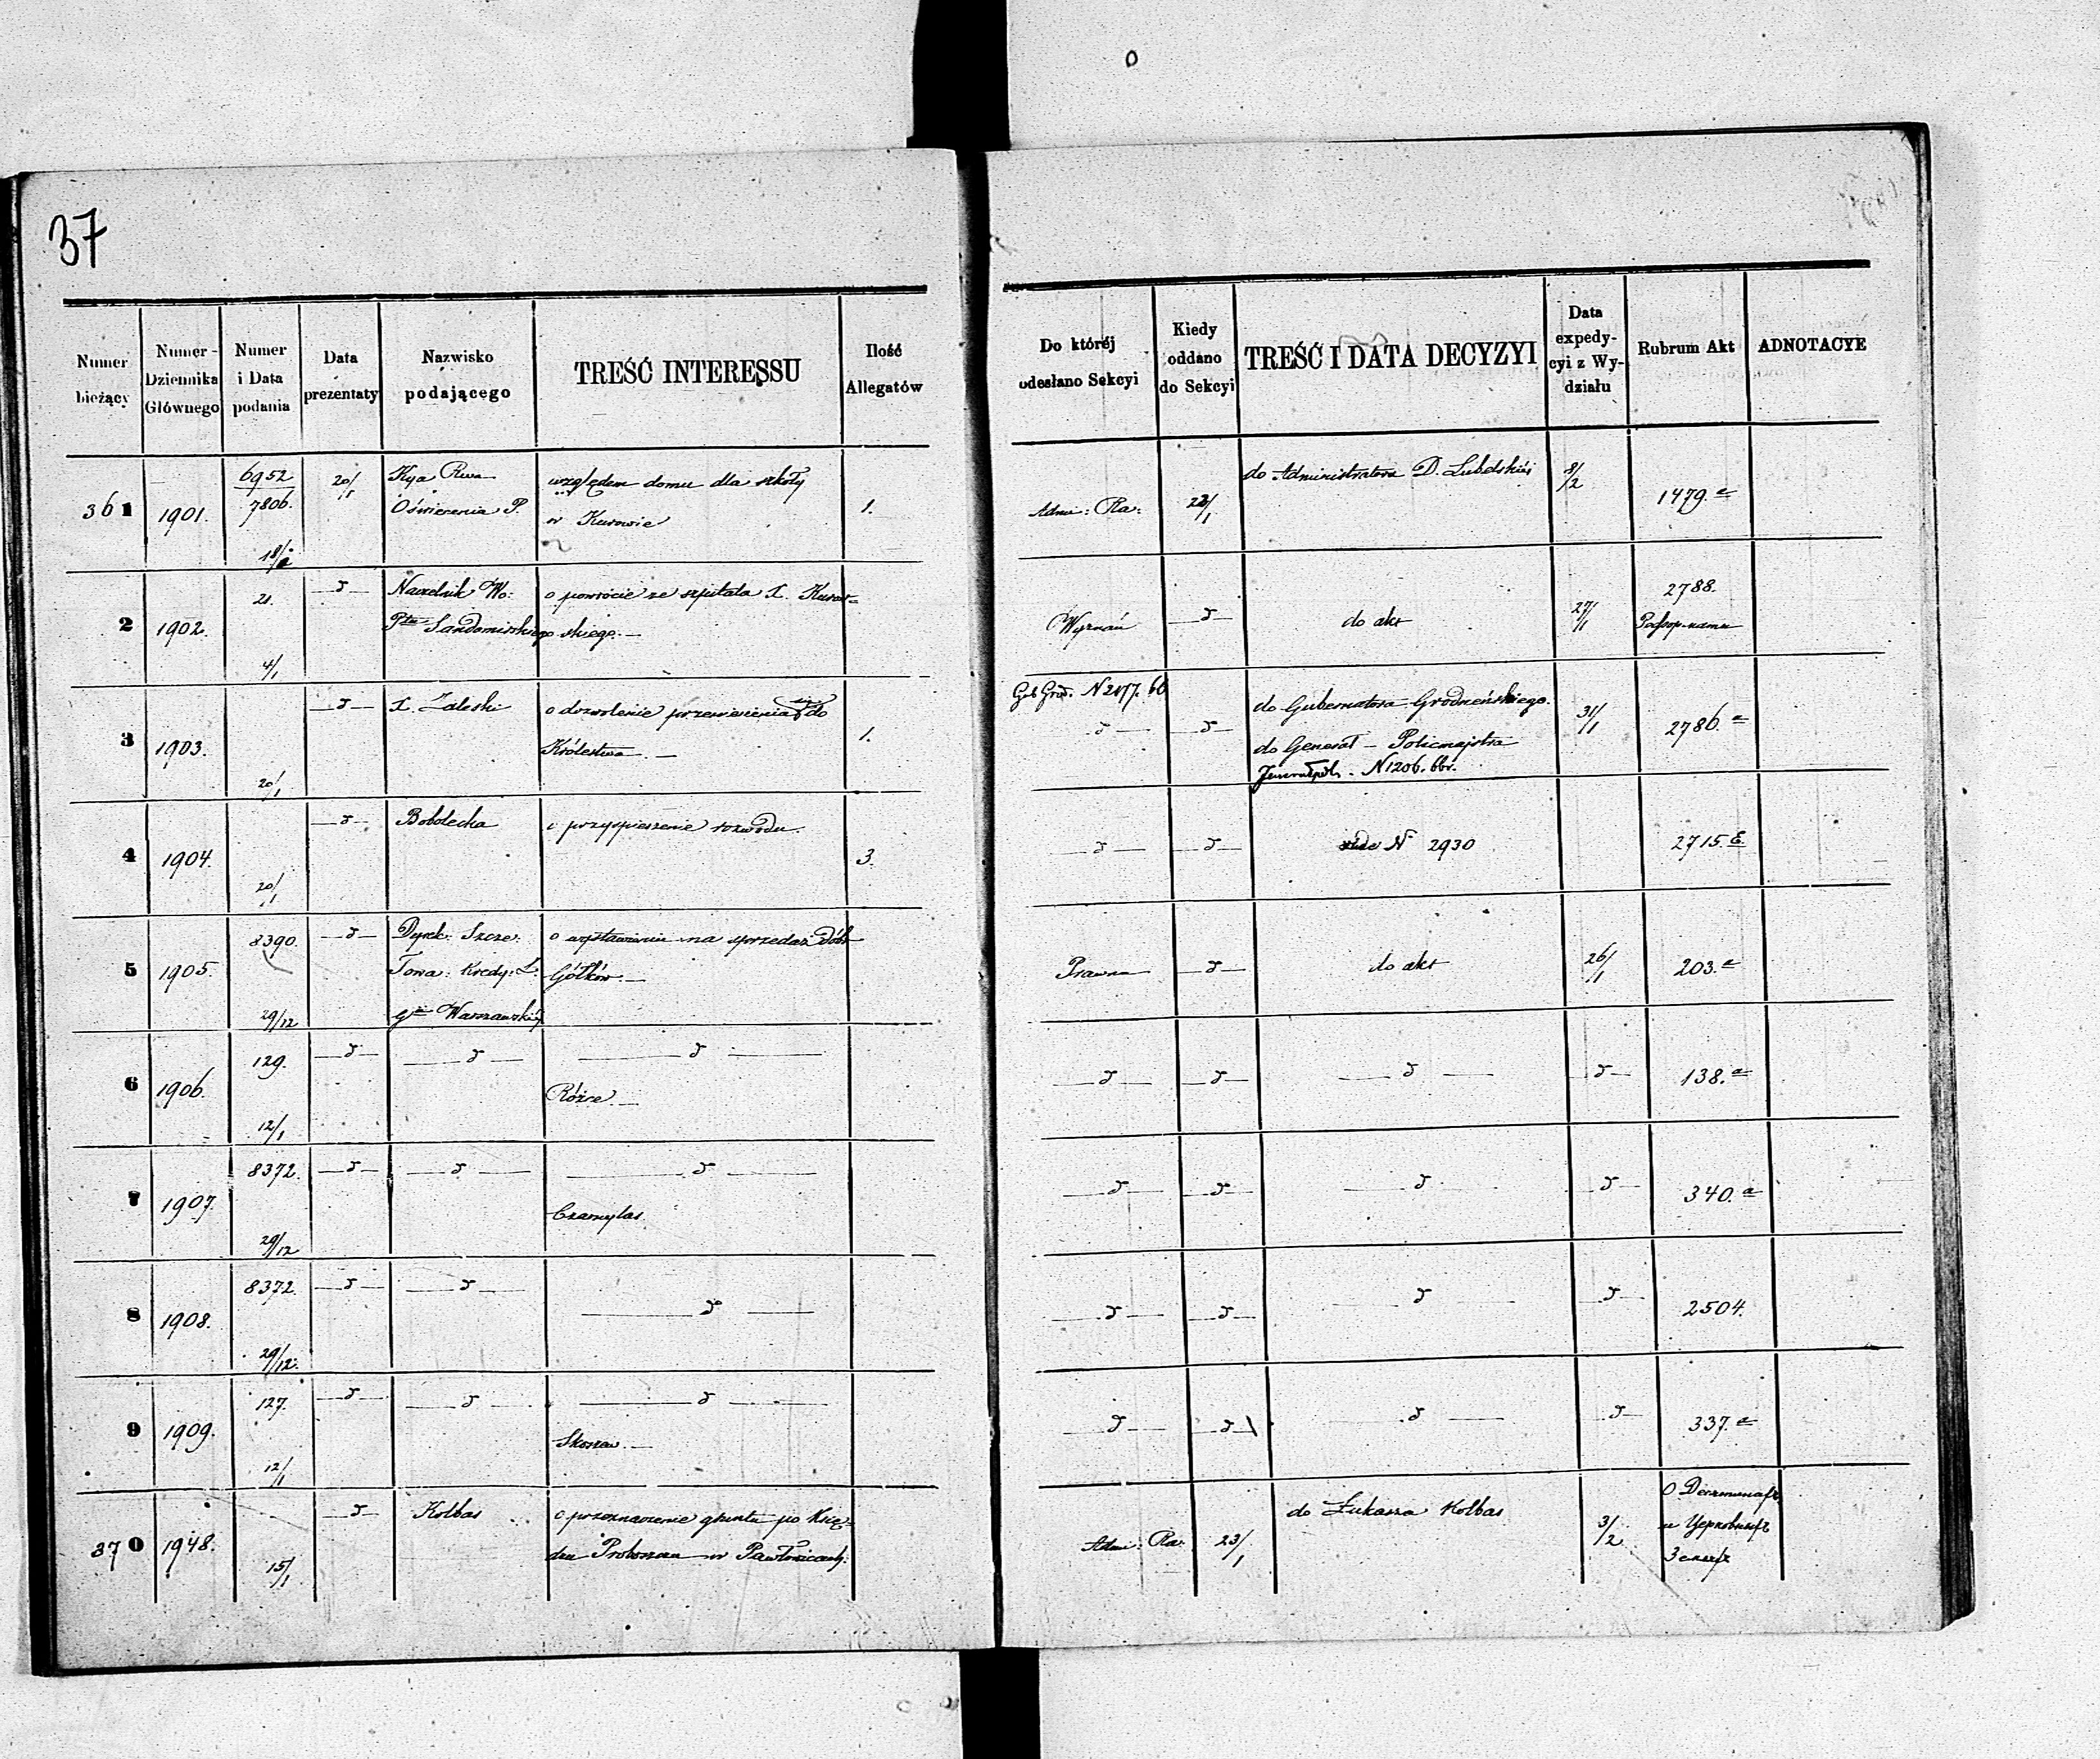 37
Numer bieżący
Numer Dziennika Głównego
Numer i Data podania
Data prezentaty
Nazwisko podającego
TREŚĆ INTERESSU
Ilość Allegatów
Do którój odesłano Sekcyi
Kiedy oddano do Sekcyi
TREŚĆ I DATA DECYZYI
Data expedycyi z Wydziału
Rubrum Akt
ADNOTACYE
361 1901. 6952 7806. 20/1
Oświecenia P.
względem domu dla szkoły
w Kurowie
1.
Adm: Ra:
do Administratora D. Lubelskiej
8/2
1479.a
2 1902. 21. 4/1
Naczelnik Wo:
Sandomirskiego
o powrócie ze szpitala X. Kurow-
skiego.
Wyznań
do akt
27/1
2788.
3 1903. 20/1
X. Zaleski
o dozwolenie przeniesienia się do
Królestwa.
1.
do Gubernatora Grodzieńskiego.
do Generał-Policmajstra
N 1206.
31/1
2786.a
4 1904. 20/1
Bobolecka
o przyspieszenie rozwodu.
3.
vide N 2930
2715.
5 1905. 8390. 29/12
Dyrek: Szcze:
Towa: Kredy: Z.
Gu Warszawskiej
o wystawieniu na sprzedaż dóbr
Gółków.
Prawna
do akt
26/1
203.a
6 1906. 129. 12/1
Różce.
138.a
7 1907. 8372. 29/12
Czarnylas.
340.a
8 1908. 8372. 29/12
2504.
9 1909. 127. 12/1
337.a
370 1948. 15/1
Kolbas
o przeznaczenie gruntu po Księ-
dzu Proboszczu w Pawłowicach.
Adm: Ra: 23/1
do Łukasza Kolbas
3/2